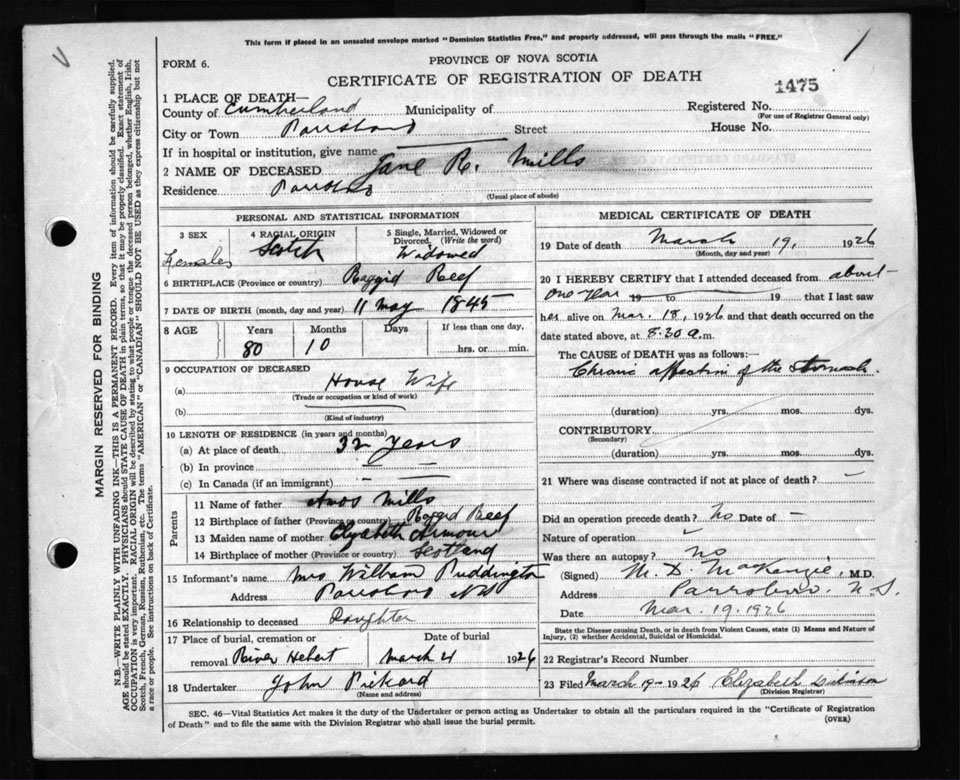 This form if placed in an unsealed envelope marked "Dominion Statistics Free," and properly addressed, will pass through the mails "FREE."
V
1
FORM 6.
PROVINCE OF NOVA SCOTIA
CERTIFICATE OF REGISTRATION OF DEATH
1475
1 PLACE OF DEATH—
County of Cumberland Municipality of Registered No.
(For use of Registrar General only)
City or Town Parrsboro Street House No.
If in hospital or institution, give name
2 NAME OF DECEASED Jane R. Mills
Residence Parrsboro
(Usual place of abode)
PERSONAL AND STATISTICAL INFORMATION
3 SEX 4 RACIAL ORIGIN 5 Single, Married, Widowed or Divorced. (Write the word)
Female Scotch Widowed
6 BIRTHPLACE (Province or country) Raggid Reef
7 DATE OF BIRTH (month, day and year) 11 May 1845
8 AGE Years Months Days If less than one day,
80 10 hrs. or min.
9 OCCUPATION OF DECEASED
(a) House Wife
(Trade or occupation or kind of work)
(b)
(Kind of industry)
10 LENGTH OF RESIDENCE (in years and months)
(a) At place of death 32 years
(b) In province
(c) In Canada (if an immigrant)
Parents
11 Name of father Amos Mills
12 Birthplace of father (Province or country) Raggid Reef
13 Maiden name of mother Elyzabeth Armour
14 Birthplace of mother (Province or country) Scotland
15 Informant's name Mrs William Puddington
Address Parrsboro NS
16 Relationship to deceased Daughter
17 Place of burial, cremation or Date of burial
removal River Hebert March 21 1926
18 Undertaker John Pickard
(Name and address)
MEDICAL CERTIFICATE OF DEATH
19 Date of death March 19, 1926
(Month, day and year)
20 I HEREBY CERTIFY that I attended deceased from about
one year 19 to 19 that I last saw
her alive on Mar. 18, 1926 and that death occurred on the
date stated above, at 8.30 a.m.
The CAUSE OF DEATH was as follows:
Chronic affection of the stomach.
(duration) yrs. mos. dys.
CONTRIBUTORY
(Secondary)
(duration) yrs. mos. dys.
21 Where was disease contracted if not at place of death? –
Did an operation precede death? No Date of –
Nature of operation
Was there an autopsy? No
(Signed) M. D. MacKenzie, M.D.
Address Parrsboro. N.S.
Date Mar. 19. 1926
State the Disease causing Death, or in death from Violent Causes, state (1) Means and Nature of
Injury, (2) whether Accidental, Suicidal or Homicidal.
22 Registrar's Record Number
23 Filed March 19– 1926 Elizabeth
(Division Registrar)
SEC. 46—Vital Statistics Act makes it the duty of the Undertaker or person acting as Undertaker to obtain all the particulars required in the "Certificate of Registration
of Death" and to file the same with the Division Registrar who shall issue the burial permit.
(OVER)
MARGIN RESERVED FOR BINDING
N.B.—WRITE PLAINLY WITH UNFADING INK—THIS IS A PERMANENT RECORD. Every item of information should be carefully supplied.
AGE should be stated EXACTLY. PHYSICIANS should STATE CAUSE OF DEATH in plain terms, so that it may be properly classified. Exact statement of
OCCUPATION is very important. RACIAL ORIGIN will be described by stating to what people or tongue the deceased person belonged, whether English, Irish,
Scotch, French, German, Russian, Ruthenian, etc. The terms "AMERICAN" or "CANADIAN" SHOULD NOT BE USED as they express citizenship but not
a race or people. See instructions on back of Certificate.